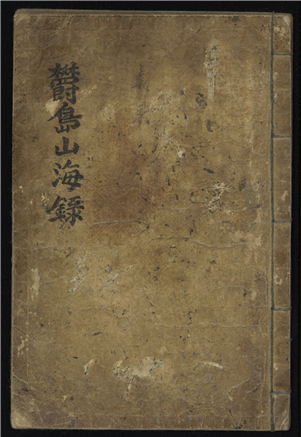 欝島山海錄